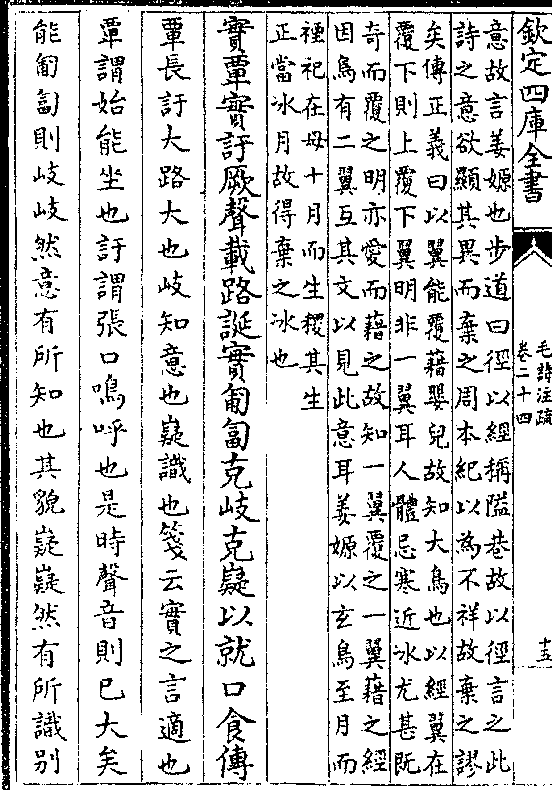 欽定四庫全書
毛詩注疏
卷二十四
十五
意故言姜嫄也步道曰徑以經稱隘巷故以徑言之此
詩之意欲顯其異而棄之周本紀以為不祥故棄之謬
矣傳正義曰以翼能覆藉嬰兒故知大鳥也以經翼在
覆下則上覆下翼明非一翼耳人體忌寒近冰尤甚既
奇而覆之明亦愛而藉之故知一翼覆之一翼藉之經
因鳥有二翼互其文以見此意耳姜嫄以玄鳥至月而
禋祀在母十月而生稷其生
正當冰月故得棄之冰也
實覃實訏厥聲載路誕實匍匐克岐克嶷以就口食傳
覃長訏大路大也岐知意也嶷識也箋云實之言適也
覃謂始能坐也訏謂張口嗚呼也是時聲音則已大矣
能匍匐則岐岐然意有所知也其貌嶷嶷然有所識别